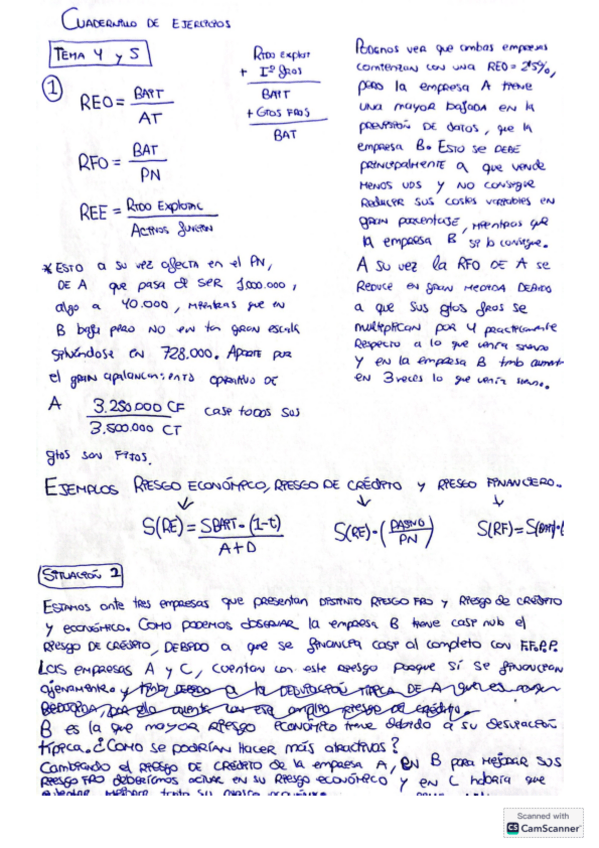 CUADERNILLO DE EJERCICIOS
TEMA 4 y 5
1
REO = BAIT / AT
RFO = BAT / PN
REE = RTDO EXPLOTAC / ACTIVOS FUNCION
RTDO EXPLOT
+ Iº fros
BAIT
+ GTOS FROS
BAT
PODEMOS VER QUE AMBAS EMPRESAS
COMIENZAN CON UNA REO = 25%,
PERO LA EMPRESA A TIENE
UNA MAYOR BAJADA EN LA
PREVISIÓN DE DATOS, QUE LA
EMPRESA B. ESTO SE DEBE
PRINCIPALMENTE A QUE VENDE
MENOS UDS Y NO CONSIGUE
REDUCIR SUS COSTES VARIABLES EN
GRAN PORCENTAJE, MIENTRAS QUE
LA EMPRESA B SI LO CONSIGUE.
A SU VEZ LA RFO DE A SE
REDUCE EN GRAN MEDIDA DEBIDO
A QUE SUS gtos fros SE
MULTIPLICAN POR 4 PRACTICAMENTE
RESPECTO A LO QUE VENÍA SIENDO
Y EN LA EMPRESA B tmb aument
EN 3 VECES LO QUE VENÍA SIENDO.
* ESTO A SU VEZ AFECTA EN EL PN,
DE A QUE PASA DE SER 1.000.000,
ALGO A 40.000, MIENTRAS QUE EN
B BAJA PERO NO EN TAN GRAN ESCALA
SITUÁNDOSE EN 728.000. APARTE POR
EL GRAN APALANCAMIENTO OPERATIVO DE
A 3.250.000 CF / 3.500.000 CT CASI TODOS SUS
gtos SON FIJOS.
EJEMPLOS RIESGO ECONÓMICO, RIESGO DE CRÉDITO Y RIESGO FINANCIERO.
S(RE) = SBAIT · (1-t) / A+D
S(RE) · (PASIVO / PN)
S(RF) = S(
SITUACIÓN 1
ESTAMOS ANTE TRES EMPRESAS QUE PRESENTAN DISTINTO RIESGO FRO Y RIESGO DE CRÉDITO
Y ECONÓMICO. COMO PODEMOS OBSERVAR LA EMPRESA B TIENE CASI NULO EL
RIESGO DE CRÉDITO, DEBIDO A QUE SE FINANCIA CASI AL COMPLETO CON FF.PP.
LAS EMPRESAS A Y C, CUENTAN CON ESTE RIESGO PORQUE SÍ SE FINANCIAN
AJENAMENTE
B ES LA QUE MAYOR RIESGO ECONÓMICO TIENE DEBIDO A SU DESVIACIÓN
TÍPICA. ¿CÓMO SE PODRÍAN HACER MÁS ATRACTIVOS?
CAMBIANDO EL RIESGO DE CRÉDITO DE LA EMPRESA A, EN B PARA MEJORAR SUS
RIESGO FRO DEBERÍAMOS ACTUAR EN SU RIESGO ECONÓMICO Y EN C HABRÍA QUE
Scanned with
CS CamScanner